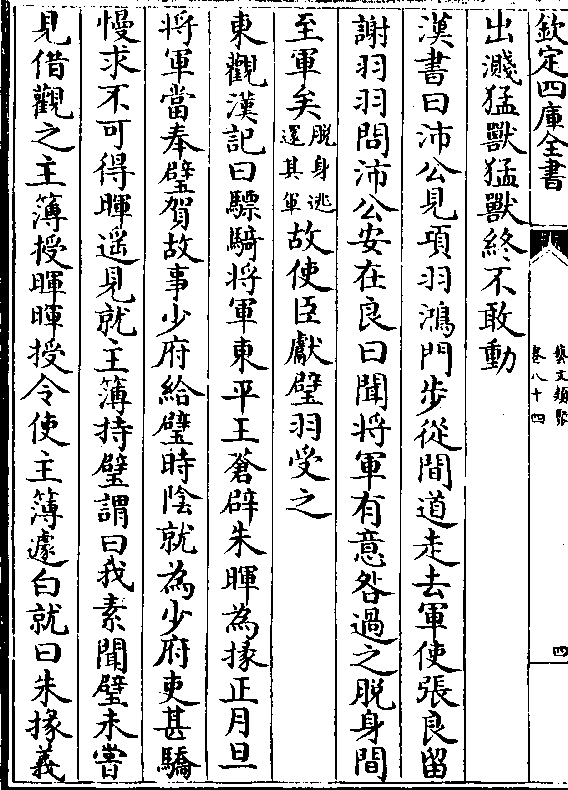 欽定四庫全書
藝文類聚
卷八十四
四
出濺猛獸猛獸終不敢動
漢書曰沛公見項羽鴻門步從間道走去軍使張良留
謝羽羽問沛公安在良曰聞將軍有意咎過之脫身間
至軍矣脫身逃還其軍故使臣獻璧羽受之
東觀漢記曰驃騎將軍東平王蒼辟朱暉為掾正月旦
将軍當奉璧賀故事少府給璧時陰就為少府吏甚驕
慢求不可得暉遥見就主簿持璧謂曰我素聞璧未嘗
見借觀之主簿授暉暉授令使主簿遽白就曰朱掾義